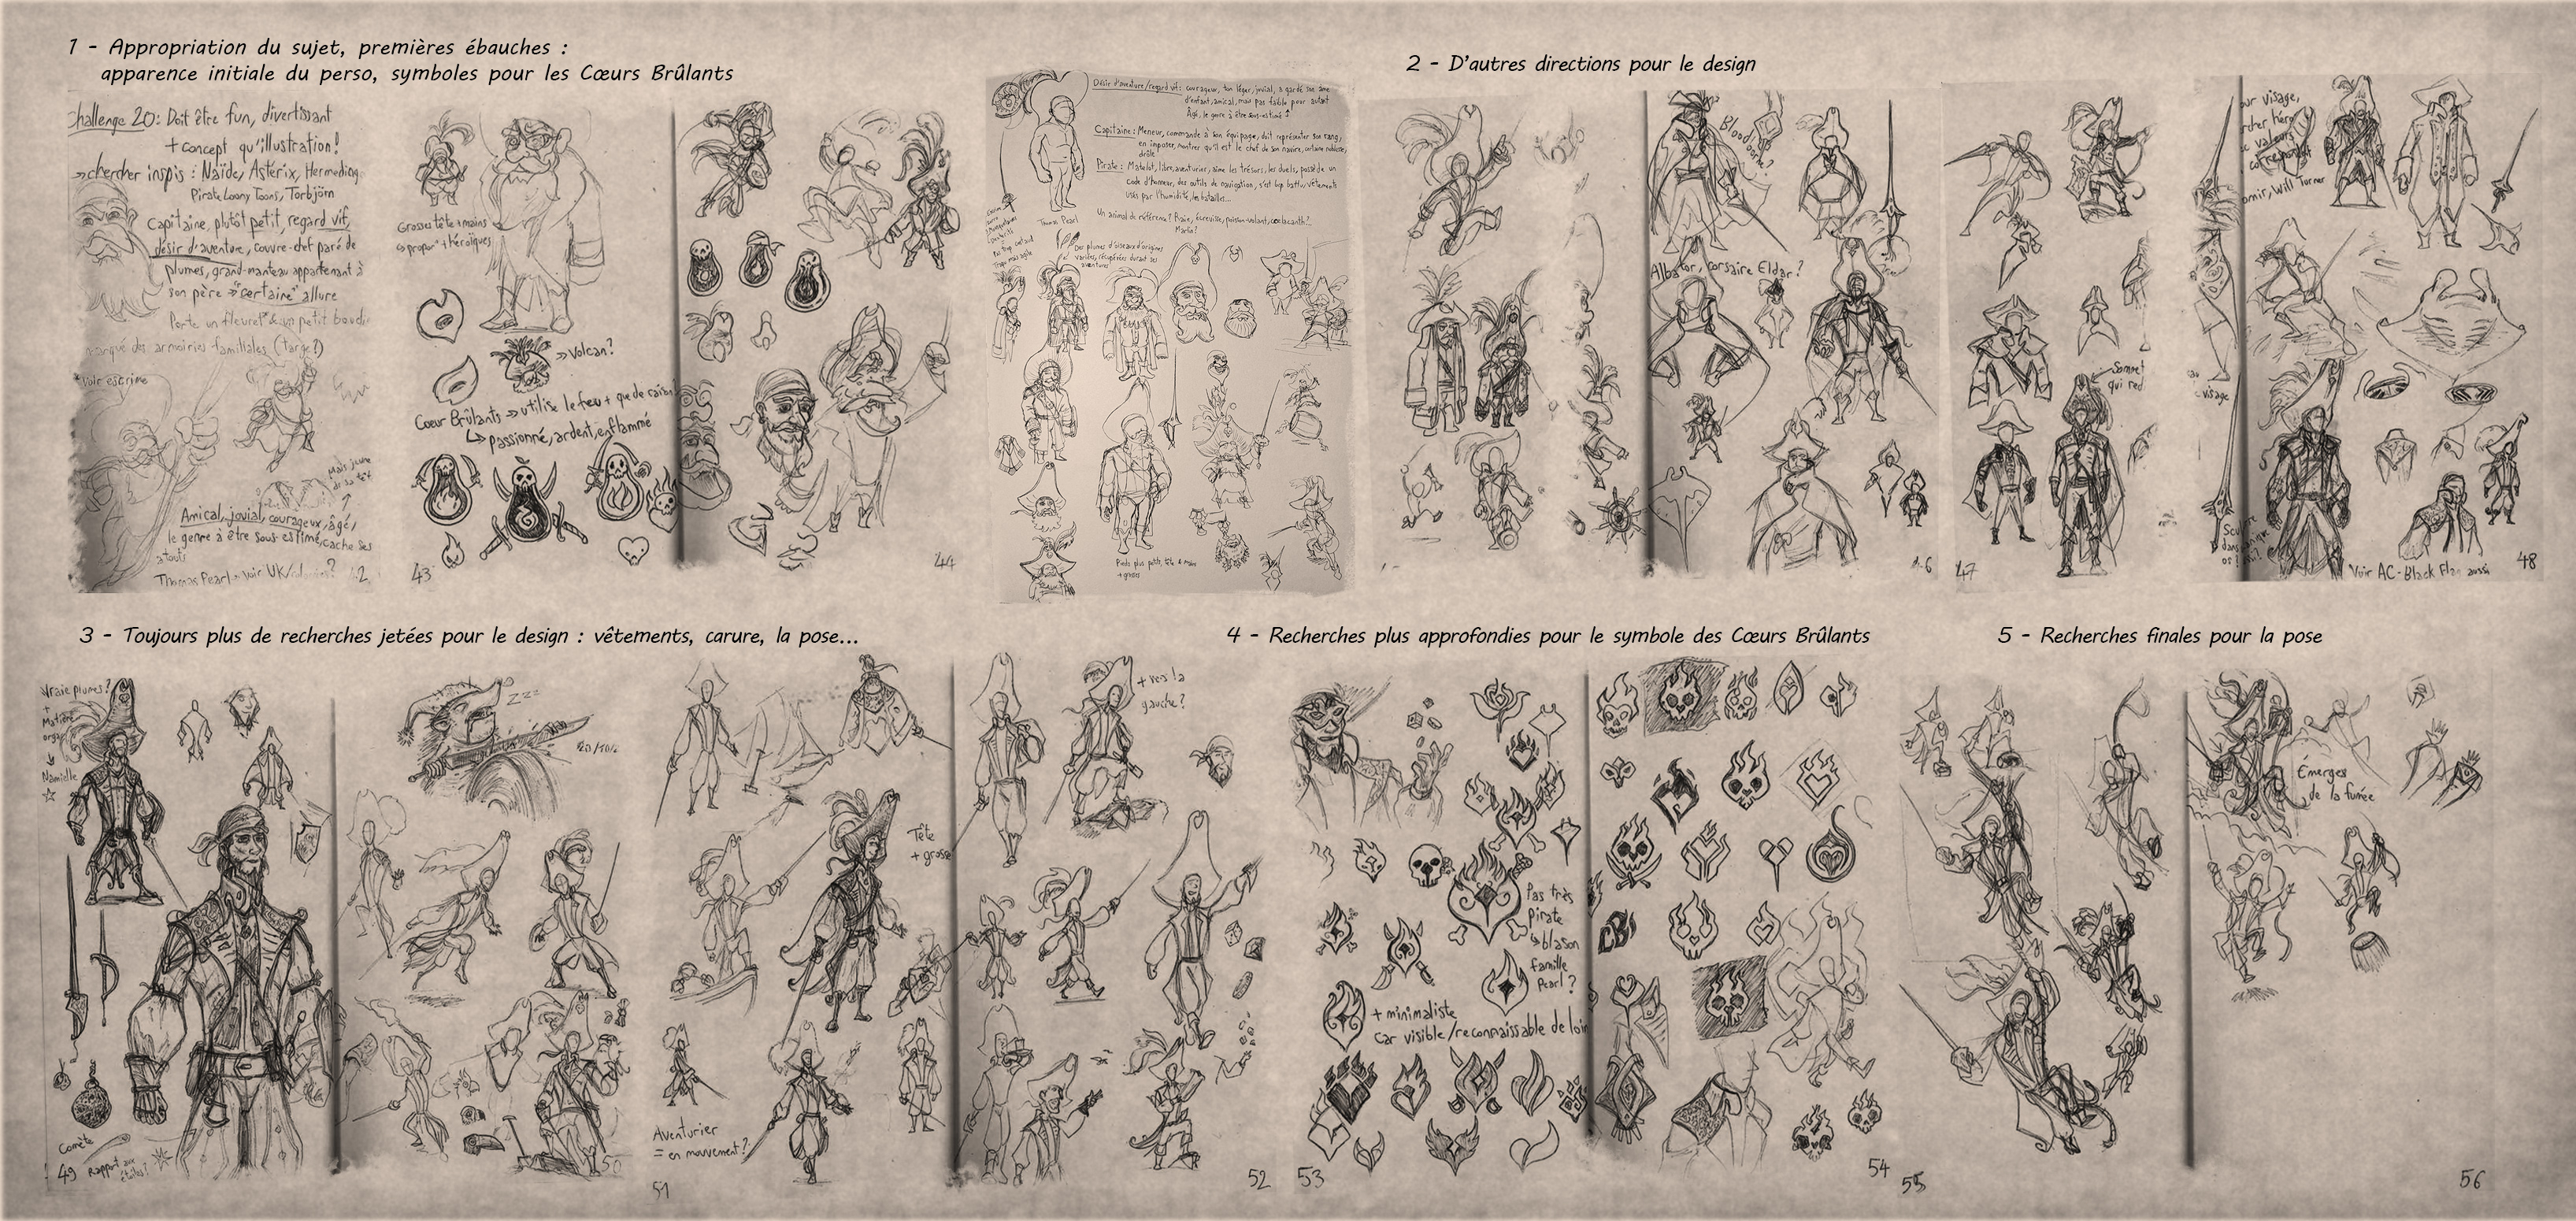 1 - Appropriation du sujet, premières ébauches :
apparence initiale du perso, symboles pour les Cœurs Brûlants
Challenge 20: Doit être fun, divertissant
+ concept qu'illustration!
chercher inspis : Naïde, Astérix,
Pirate Loony Toons, Torbjörn
Capitaine, plutôt petit, regard vif,
désir d'aventure, couvre-chef paré de
plumes, grand-manteau appartenant à
son père → "certaine" allure
Porte un fleuret & un petit
marqué des armoiries familiales (targe?)
*voir escrime
Mais jeune
Amical, jovial, courageux, âgé,
le genre à être sous-estimé, cache ses
atouts
Thomas Pearl → voir UK/
42
Grosses tête + mains
+ héroïques
→ Volcan?
Cœur Brûlants → utilise le feu + que de
↳ passionné, ardent, enflammé
43
44
Désir d'aventure/regard vif: courageux, ton léger, jovial, a gardé son âme
d'enfant, amical, mais pas faible pour autant
Âgé, le genre à être sous-estimé
Capitaine: Meneur, commande à son équipage, doit représenter son rang,
en imposer, montrer qu'il est le chef de son navire, certaine noblesse,
drôle
Pirate: Matelot, libre, aventurier, aime les trésors, les duels, possède un
code d'honneur, des outils de navigation, s'est bcp battu, vêtements
usés par l'humidité, les batailles...
Thomas Pearl
Un animal de référence? Raie, écrevisse, poisson-volant, coelacanth?...
Des plumes d'oiseaux d'origines
variées, récupérées durant ses
aventures
Pieds plus petits, tête & mains
+ grosses
2 - D'autres directions pour le design
Bloodborne?
Albator, corsaire Eldar?
6
47
Sommet
qui
visage,
Will Turner
visage
Voir AC-Black Flag aussi
48
3 - Toujours plus de recherches jetées pour le design : vêtements, carure, la pose...
Vraie plumes?
+
Matière
orga
Namielle
zzz
Comète
Rapport aux
étoiles?
49
50
+ vers la
gauche?
Tête
+ grosse
Aventurier
= en mouvement?
51
52
4 - Recherches plus approfondies pour le symbole des Cœurs Brûlants
Pas très
pirate
↳ blason
famille
Pearl?
+ minimaliste
car visible/reconnaissable de loin
CB
53
54
5 - Recherches finales pour la pose
Émerges
de la fumée
55
56